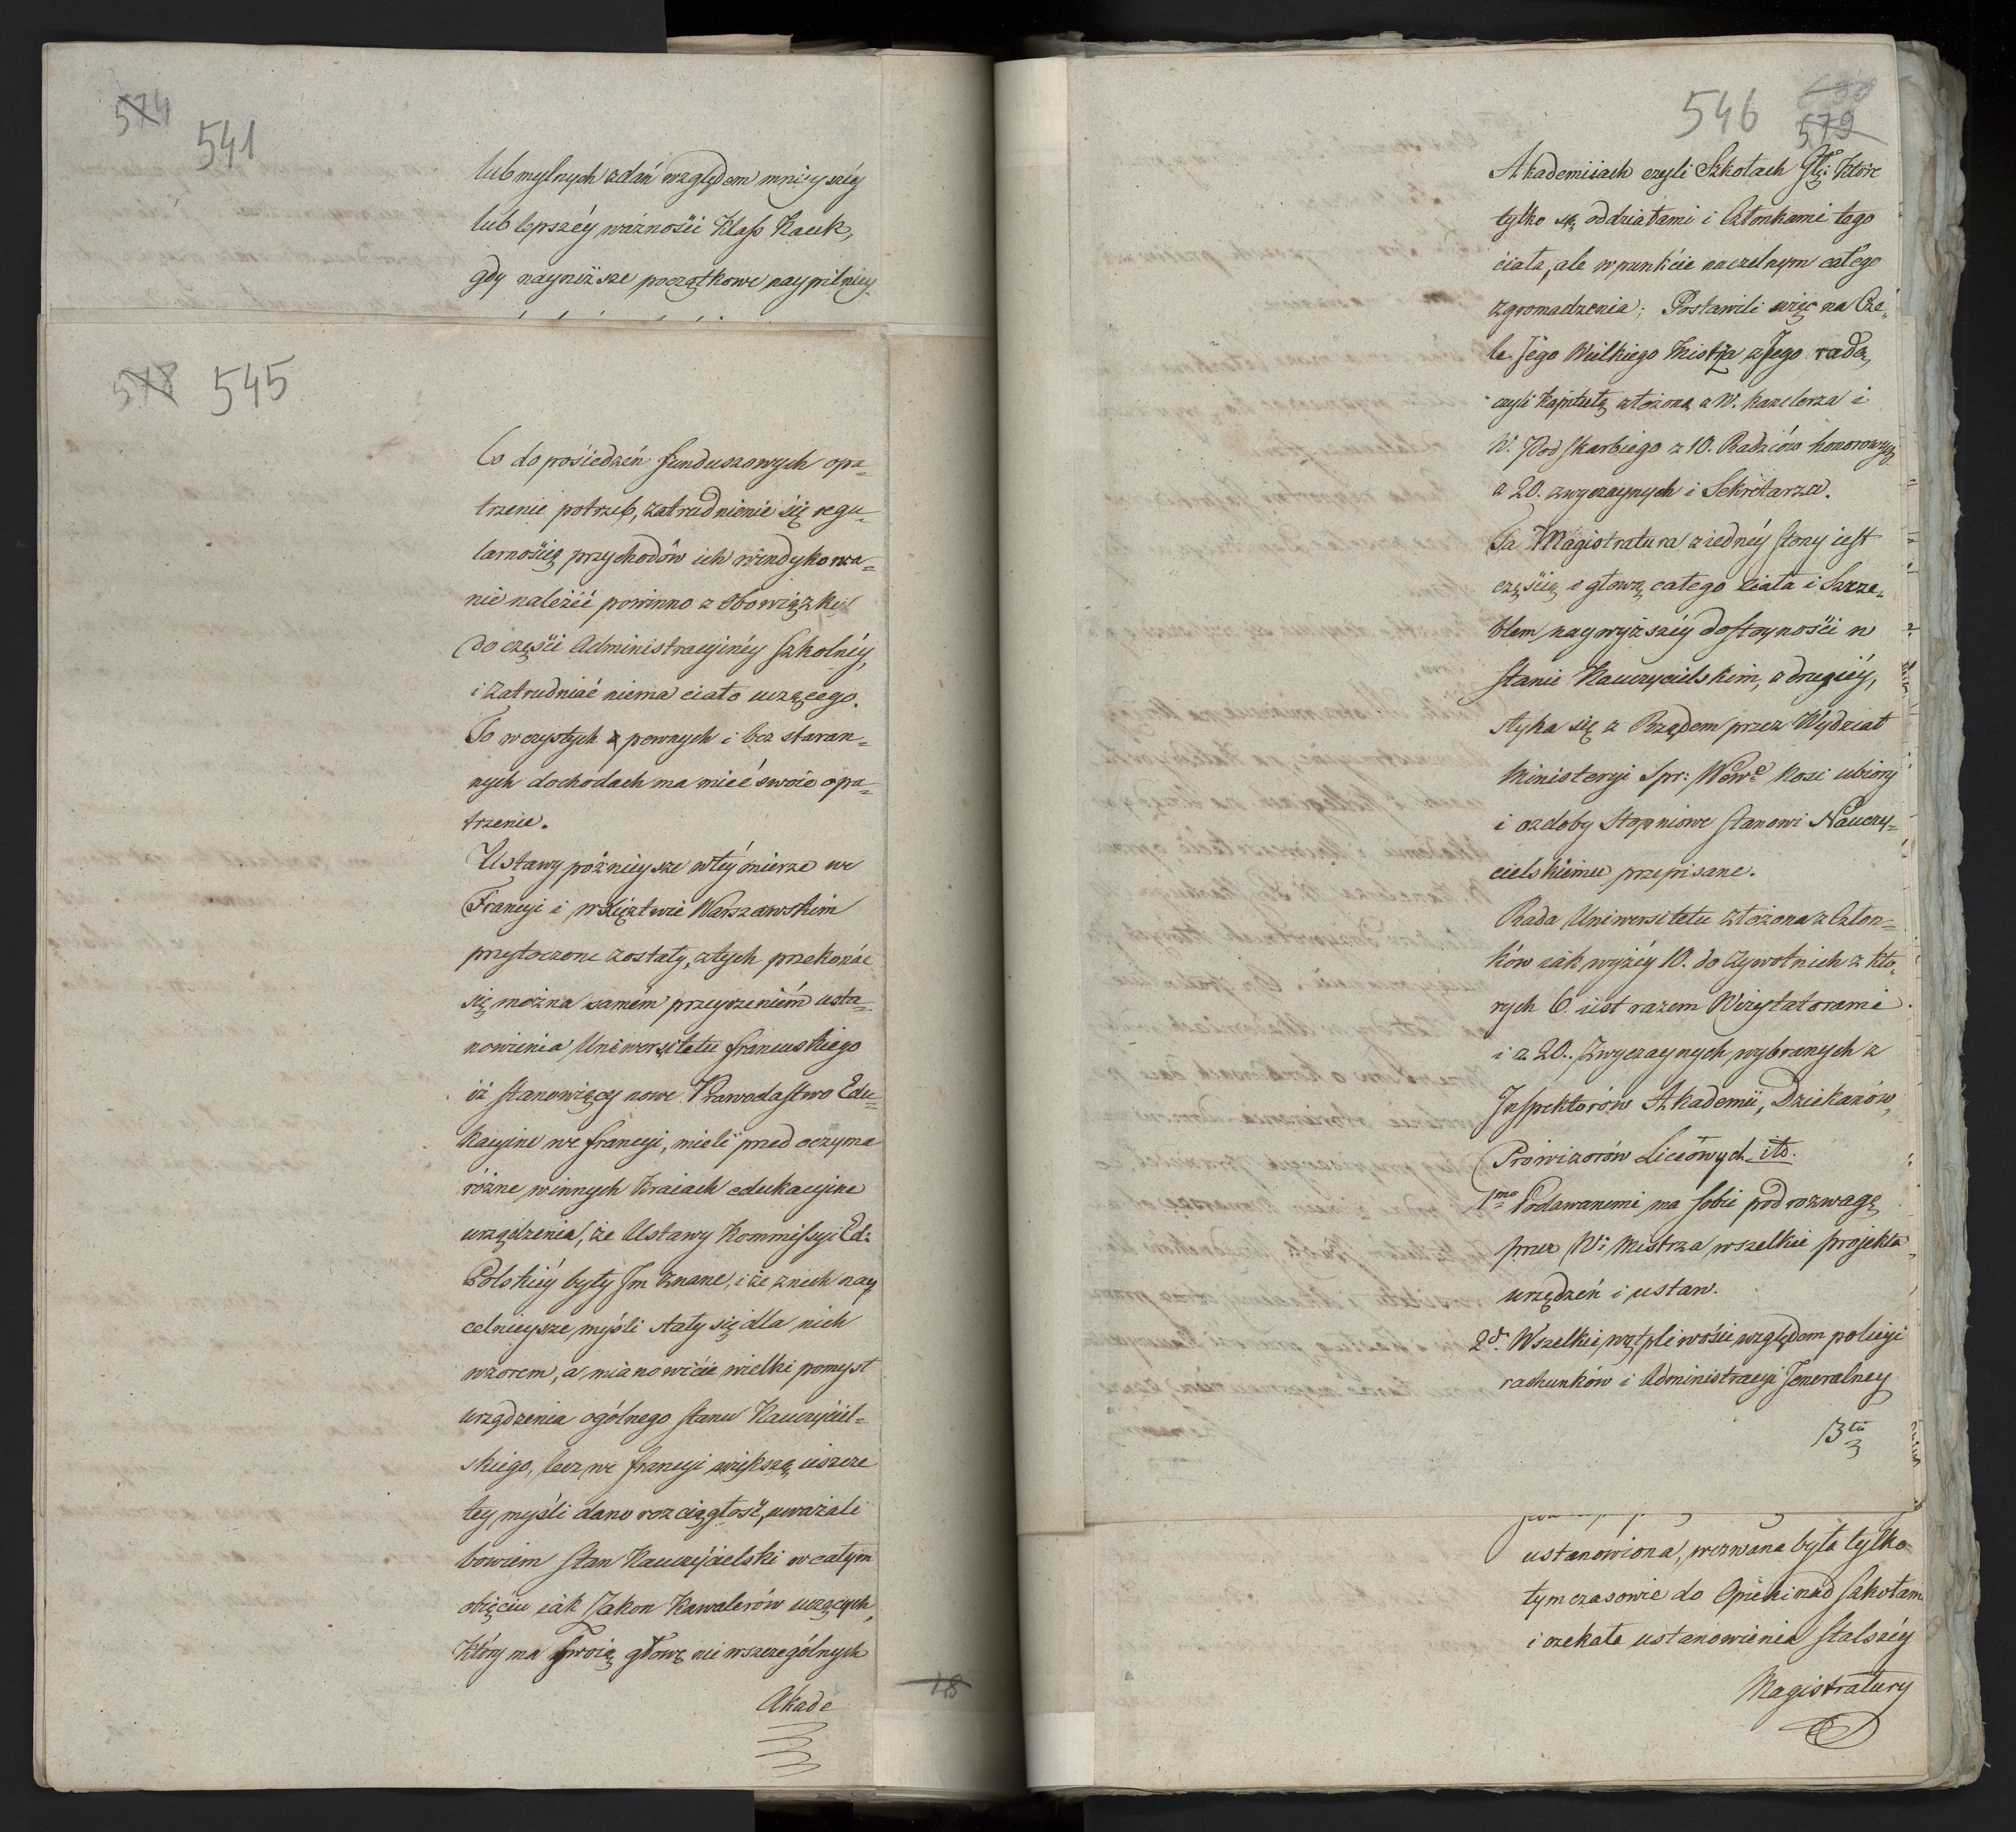 574
541
lub mylnych zdań względem mnieyszéy
lub lepszéy ważnośći Klass Nauk,
gdy nayniższe początkowe naypilniey
578 545
Co do pośiedzeń funduszowych opa=
trzenie potrzeb, zatrudnienie się regu=
larnośćią przychodów ich windykowa=
nie należéć powinno z obowiązku
do częśći Administracyinéy szkolnéy,
i zatrudniać niema ciało uczącego.
To w czystych pewnych i bez staran=
nych dochodach ma mieć swoie opa=
trzenie.
Ustawy poźnieysze w téy mierze we
Francyi i w Xięztwie Warszawskim
przytoczone zostały, z tych przekonać
się można samém przeyrzeniém usta=
nowienia Uniwersitetu francuskiego
iż stanowiący nowe Prawodastwo Edu=
kacyine we francyi, mieli przed oczyma
rózne w innych kraiach edukacyine
urządzenia, że Ustawy Kommissyi Ed:
Polskiéy były Im znane, i że z nich nay
celnieysze myśli stały się dla nich
wzorem, a mianowićie wielki pomysł
urządzenia ogólnego stanu Nauczyćiel=
skiego, lecz we francyi większą ieszcze
tey myśli dano rozciągłość, uważali
bowiem stan Nauczyćielski w całym
obięciu iak Zakon Kawalerów uczących,
który ma swoią głowę nie w szczególnych
Akade
18
546
579
Akademiiach czyli Szkołach Głi: które
tylko są oddziałami i Członkami tego
ciała, ale w punkćie naczelnym całego
zgromadzenia; Postawili więc na Cze=
le Jégo Wielkiego Mistrza z Jego radą,
czyli Kapitułą złożoną z W. kanclerza i
W. Podskarbiego z 10. Radzców honorowych
a 20. zwyczaynych i Sekretarza.
Ta Magistratura z iednéy stony iest
częśćią i głową całego ciała i Szcze=
blem naywyższéy dostoynośći w
stanie Nauczycielskim, z drugiéy,
styka się z Rządem przez Wydział
Ministeryi Spr: Wewe. Nosi ubiory
i ozdoby stopniowe stanowi Nauczy=
cielskiému przepisane.
Rada Uniwersitetu złożona z Człon=
ków iak wyżéy 10. dożywotnich z któ=
rych 6. iest razem Wizytatorami
i z 20. Zwyczaynych wybranych z
Inspektorów Akademii, Dziekanów,
Prowizorów Liceówych itd.
1mo Podawanemi ma sobie pod rozwagę
przez W: Mistrza wszelkie projekta
urządzeń i ustaw.
2do. Wszelkie wątpliwośći względem policyi
rachunków i Administracyi Jeneralney
3tio
ustanowiona, wezwana była tylko
tymczasowie do Opieki nad szkołami
i czekała ustanowienia stalszéy
Magistratury